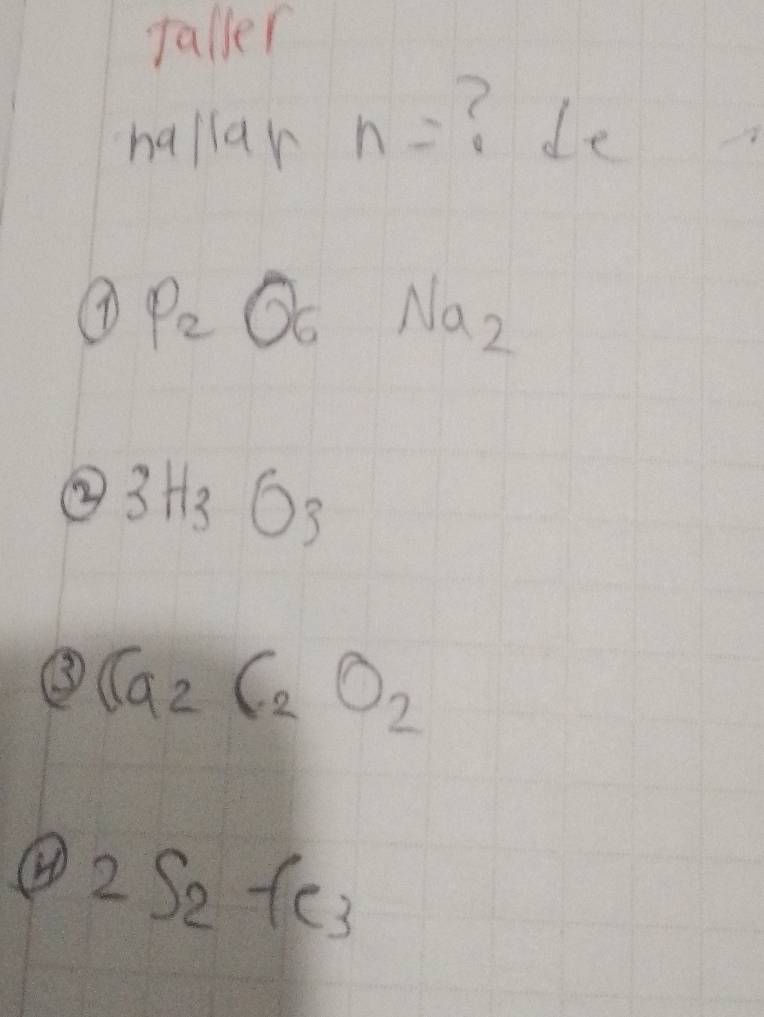 Taller
hallar n = ? de
① P₂ O₆ Na₂
② 3H₃ O₃
③ Ca₂ C₂ O₂
④ 2 S₂ fe₃